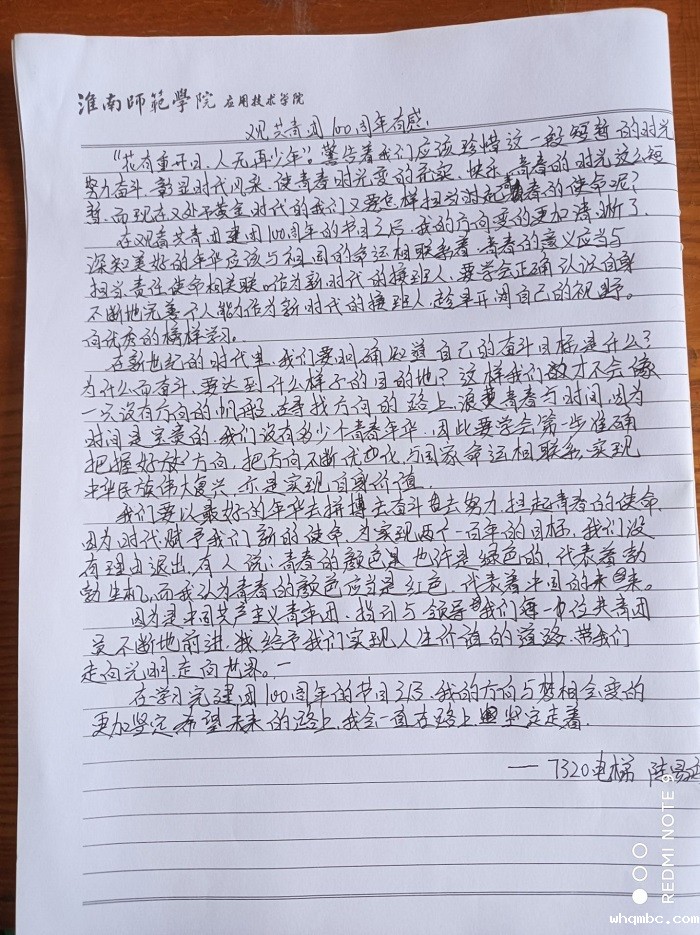 淮南师範學院 应用技术学院
观共青团100周年有感.
"花有重开日,人无再少年"。警告着我们应该珍惜这一段短暂的时光
努力奋斗,彰显时代风采,使青春时光变的充实、快乐,青春的时光这么短
暂,而现在又处于黄金时代的我们又要怎样担当时起青春的使命呢?
在观看共青团建团100周年的节目之后,我的方向变的更加清晰了.
深知美好的年华应该与祖国的命运相联系着,青春的意义应当与
担当责任使命相关联。作为新时代的接班人,要学会正确认识自身
不断地完善个人能力作为新时代的接班人,趁早开阔自己的视野。
向优秀的榜样学习。
在新世纪的时代里,我们要明确知道自己的奋斗目标是什么?
为什么而奋斗,要达到什么样子的目的地?这样我们才不会像
一只没有方向的帆船,在寻找方向的路上,浪费青春与时间,因为
时间是宝贵的,我们没有多少个青春年华,因此要学会第一步准确
把握好方向,把方向不断优化,与国家命运相联系,实现
中华民族伟大复兴,亦是实现自身价值.
我们要以最好的年华去拼搏去奋斗去努力,担起青春的使命,
因为时代赋予我们新的使命,为实现两个一百年的目标,我们没
有理由退出,有人说:青春的颜色也许是绿色的,代表着勃
勃生机,而我认为青春的颜色应当是红色,代表着中国的未来。
因为是中国共产主义青年团,指引与领导我们每一位共青团
员不断地前进,给予我们实现人生价值的道路,带我们
走向光明,走向世界。
在学习完建团100周年的节目之后,我的方向与梦想会变的
更加坚定,希望未来的路上,我会一直在路上坚定走着.
——7320电梯 陈
REDMI NOTE 9
whqmbc.com